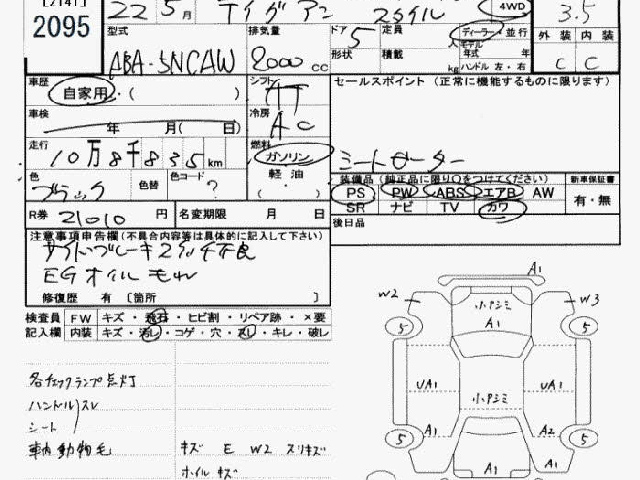 [2141]
2095
22 5月 ティグアン 2スタイル 4WD 3.5
型式 排気量 ドア 5 定員 人 ディーラー・並行 外装 内装
形状 積載 kg モデル年式 ハンドル 左・右
ABA-5NCAW 2000 cc C C
車歴 自家用・( ) シフト AT セールスポイント (正常に機能するものに限ります)
車検 年 月( 日) 冷房 AC
走行 10万8千835km 燃料 ガソリン 軽油 ( ) シートヒーター
装備品 (純正品に限り○をつけてください) 新車保証書
色 ブラック 色替 色コード ? PS PW ABS エアB AW 有・無
SR ナビ TV カワ
R券 21010 円 名変期限 月 日 後日品
注意事項申告欄 (不具合内容等は具体的に記入して下さい)
サイドブレーキスイッチ不良
EGオイルモレ
修復歴 有 〔箇所 〕
検査員 FW キズ・飛石・ヒビ割・リペア跡・×要
記入欄 内装 キズ・汚し・コゲ・穴・スレ・キレ・破レ
各チェックランプ点灯
ハンドルスレ
シート
車内動物毛 キズ E W2 スリキズ
ホイルキズ
A1
W2 小キズミ W3
5 A1 5
UA1 UA1
小キズミ
A1 A2
5 5
A1 A1 A1